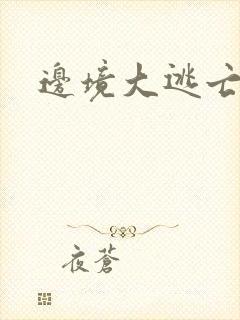 邊境大逃亡
夜蒼